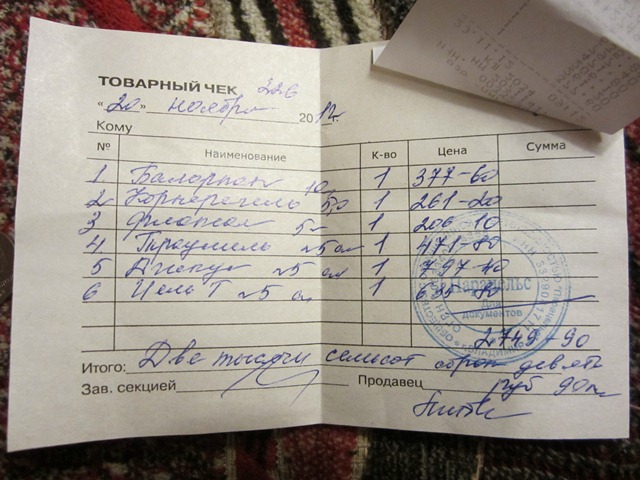 ТОВАРНЫЙ ЧЕК 226
«20» ноября 2012г.
Кому
№ Наименование К-во Цена Сумма
1 Баларпан 10, 1 377-60
2 Корнерегель 5,0 1 261-20
3 Флоксал 5 1 206-10
4 Траумель №5 ам 1 471-80
5 Дискус №5 ам 1 797-40
6 Цель Т №5 ам 1 635-80
Для
документов
2749-90
Итого: Две тысячи семьсот сорок девять
Зав. секцией Продавец руб 90к